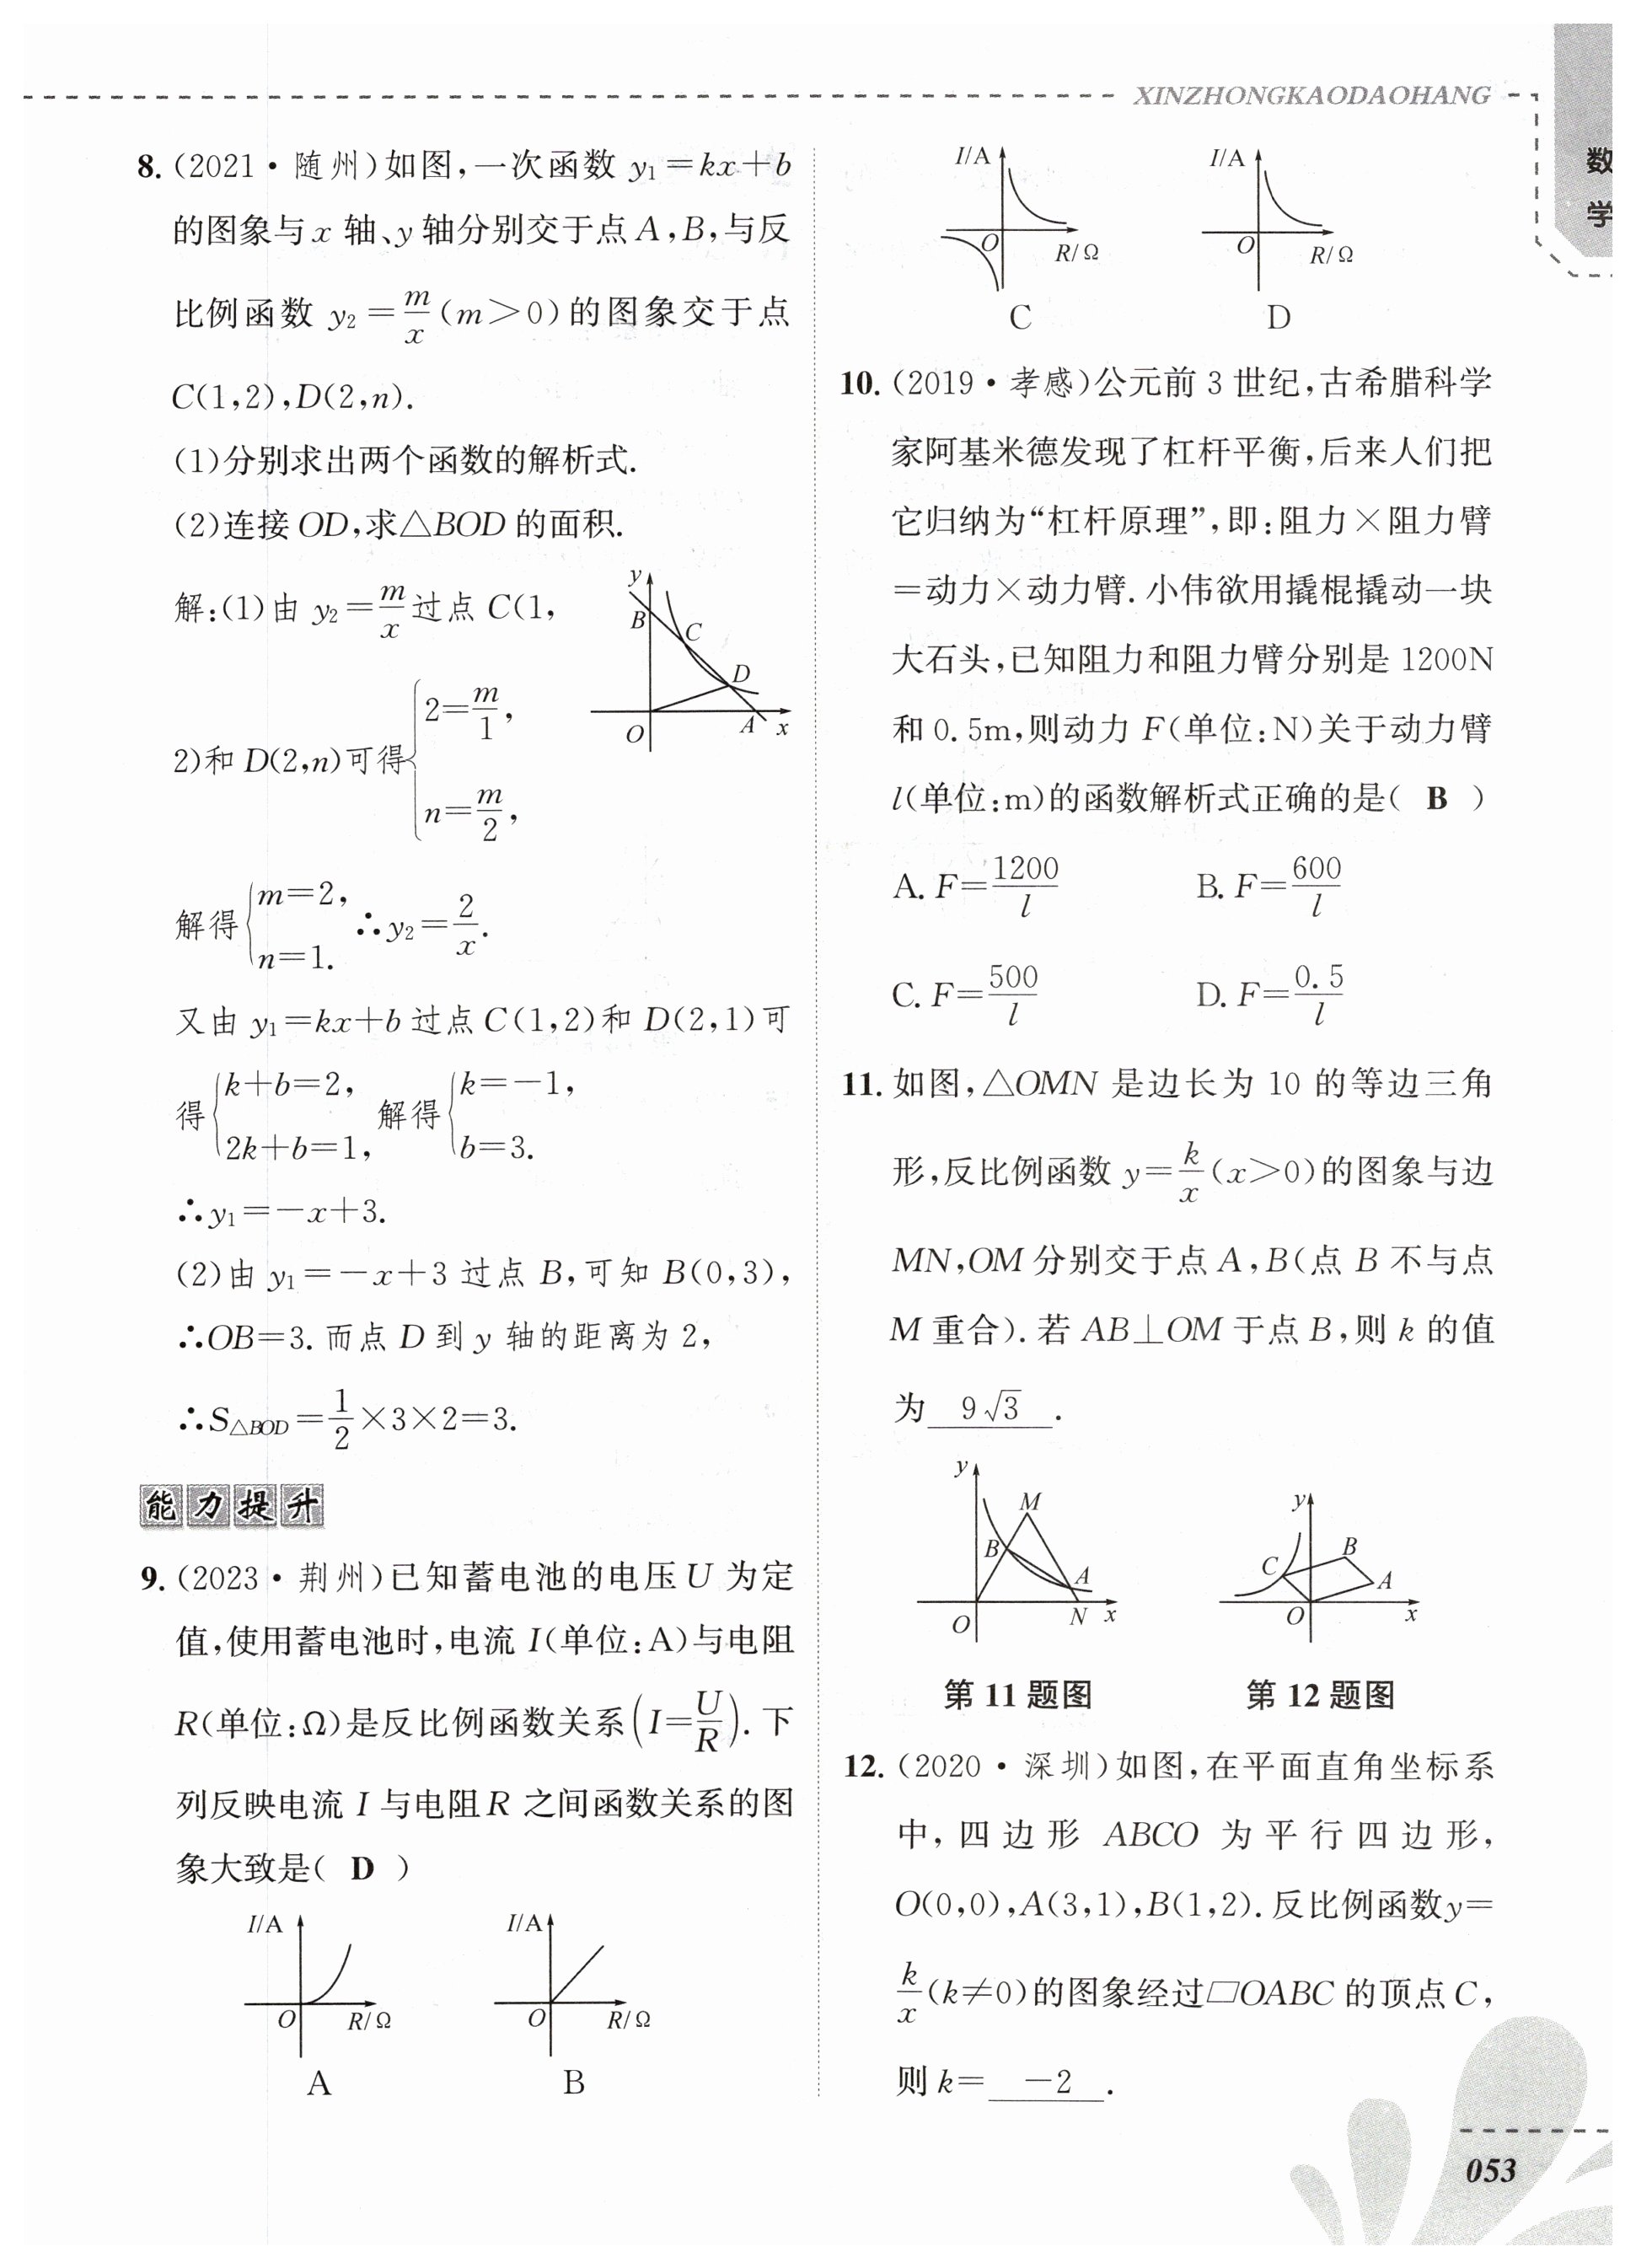 XINZHONGKAODAOHANG
数
学
8. (2021·随州)如图,一次函数 y₁=kx+b
的图象与x 轴、y轴分别交于点A,B,与反
比例函数 y₂=m/x(m>0)的图象交于点
C(1,2),D(2,n).
(1)分别求出两个函数的解析式.
(2)连接OD,求△BOD的面积.
解:(1)由 y₂=m/x过点 C(1,
2)和 D(2,n)可得{2=m/1,
n=m/2,
解得{m=2,
n=1.
∴y₂=2/x.
又由 y₁=kx+b过点C(1,2)和 D(2,1)可
得{k+b=2,
2k+b=1,
解得{k=-1,
b=3.
∴y₁=-x+3.
(2)由 y₁=-x+3 过点 B,可知 B(0,3),
∴OB=3. 而点 D 到 y 轴的距离为 2,
∴S△BOD=1/2×3×2=3.
y
B
C
D
O
A
x
能力提升
9. (2023·荆州)已知蓄电池的电压U 为定
值,使用蓄电池时,电流 I(单位:A)与电阻
R(单位:Ω)是反比例函数关系(I=U/R). 下
列反映电流 I 与电阻R 之间函数关系的图
象大致是( D )
I/A
O
R/Ω
A
I/A
O
R/Ω
B
I/A
O
R/Ω
C
I/A
O
R/Ω
D
10. (2019·孝感)公元前 3 世纪,古希腊科学
家阿基米德发现了杠杆平衡,后来人们把
它归纳为“杠杆原理”,即:阻力×阻力臂
=动力×动力臂. 小伟欲用撬棍撬动一块
大石头,已知阻力和阻力臂分别是 1200N
和0.5m,则动力 F(单位:N)关于动力臂
l(单位:m)的函数解析式正确的是( B )
A. F=1200/l B. F=600/l
C. F=500/l D. F=0.5/l
11. 如图,△OMN 是边长为 10 的等边三角
形,反比例函数 y=k/x(x>0)的图象与边
MN,OM 分别交于点 A,B(点 B 不与点
M 重合). 若 AB⊥OM 于点B,则 k 的值
为 9√3 .
y
M
B
A
O
N
x
第 11 题图
y
B
C
A
O
x
第 12 题图
12. (2020·深圳)如图,在平面直角坐标系
中,四边形 ABCO 为平行四边形,
O(0,0),A(3,1),B(1,2). 反比例函数y=
k/x(k≠0)的图象经过▱OABC 的顶点C,
则 k= -2 .
053